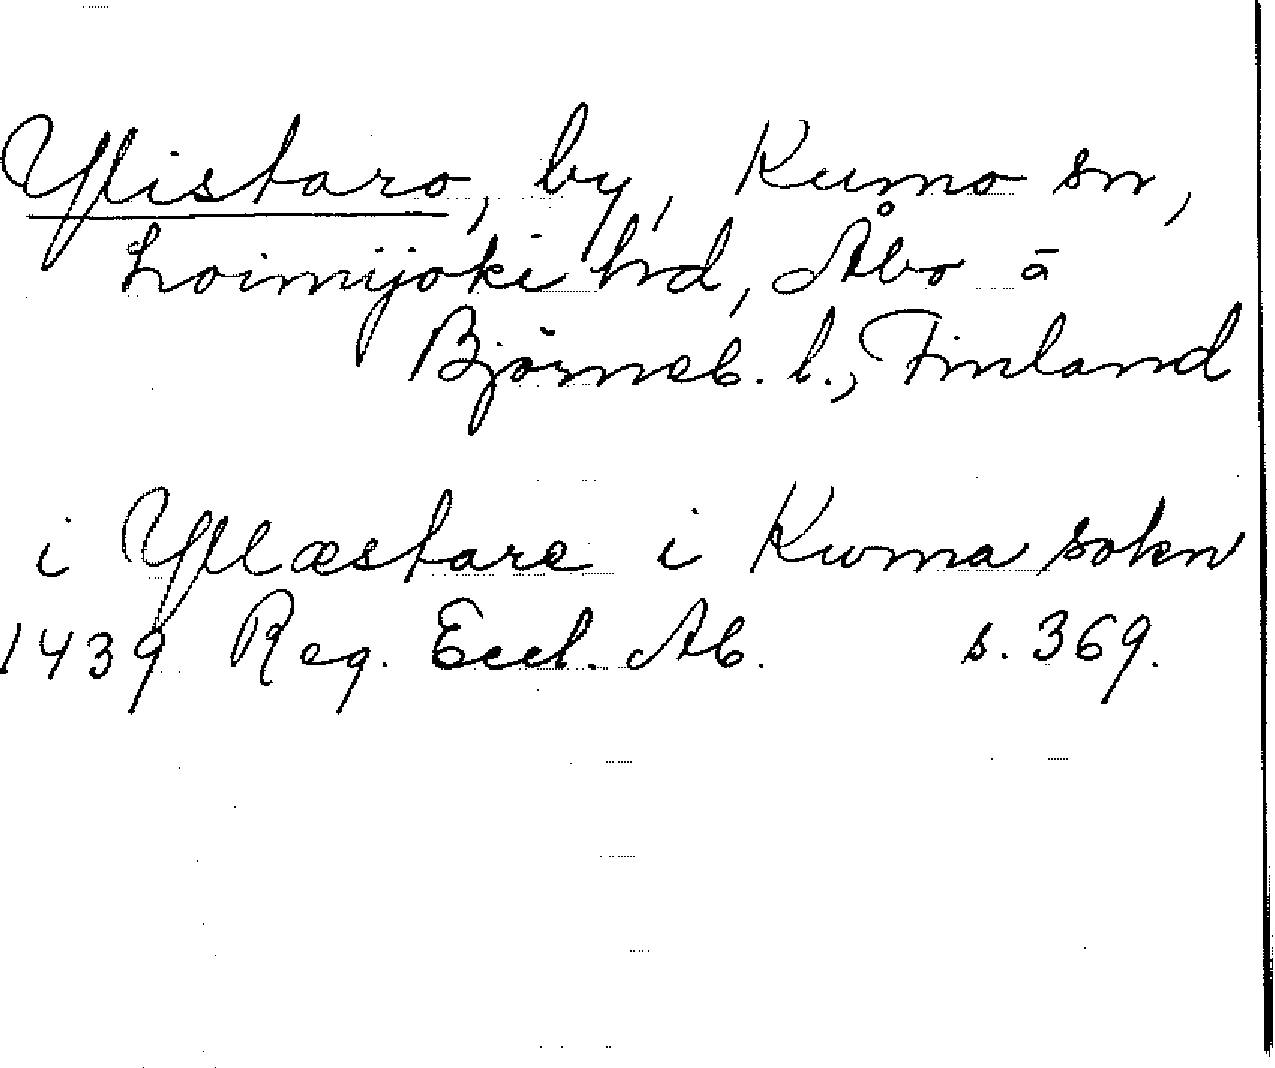 Ylistaro, by, Kumo sn,
Loimijoki hd, Åbo o
Björneb. l., Finland
i Yllæstare i Kwma sokn
1439 Reg. Eccl. Ab. s. 369.